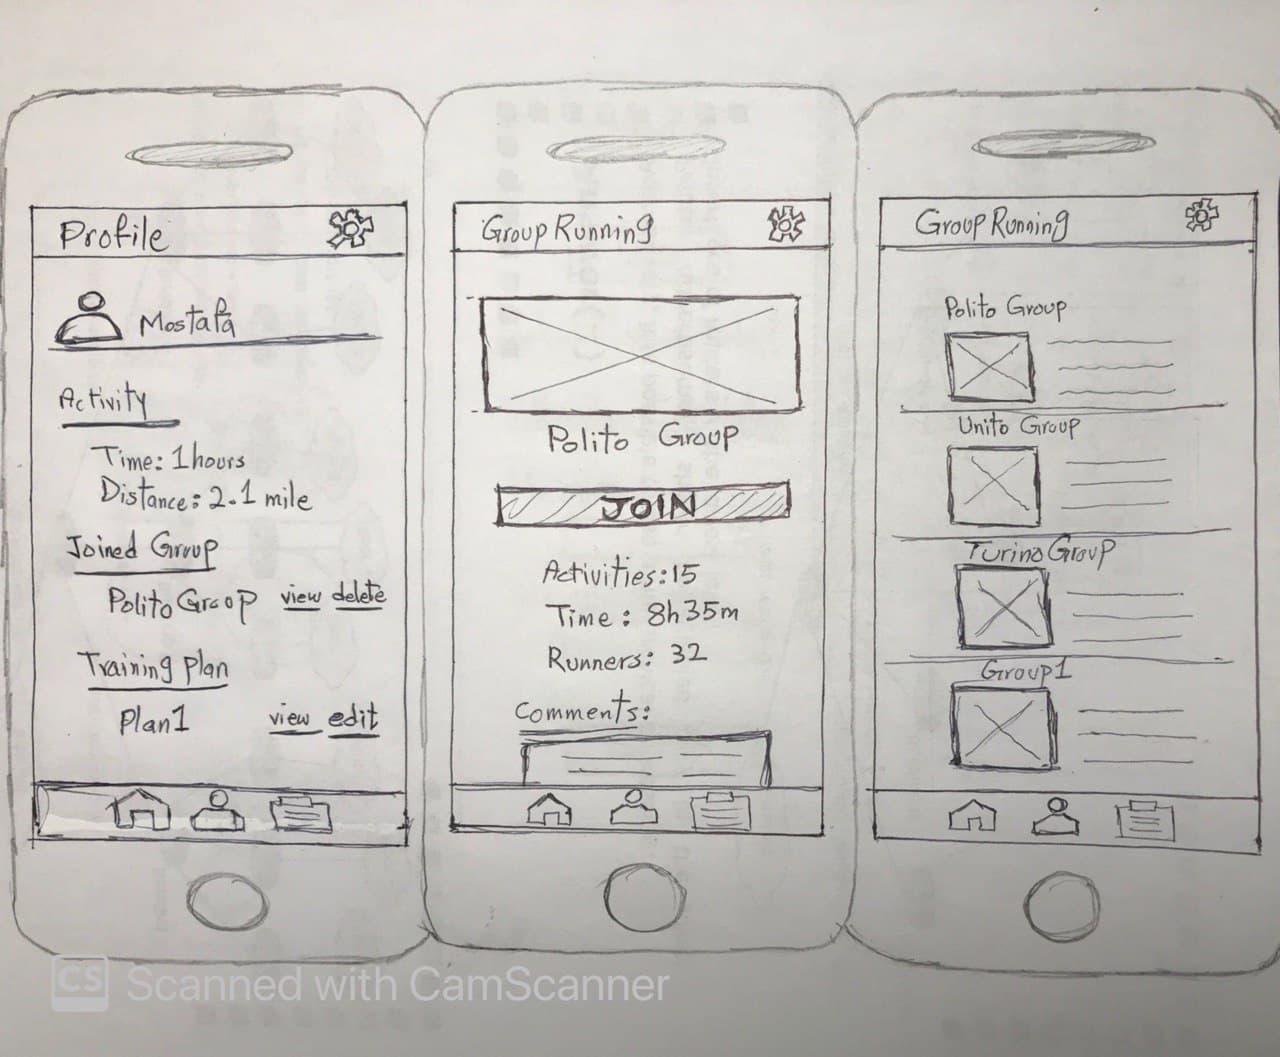 Profile
Mostafa
Activity
Time: 1hours
Distance: 2.1 mile
Joined Group
Polito Group view delete
Training plan
Plan1 view edit
Group Running
Polito Group
JOIN
Activities: 15
Time: 8h35m
Runners: 32
Comments:
Group Running
Polito Group
Unito Group
Turino Group
Group1
CS Scanned with CamScanner